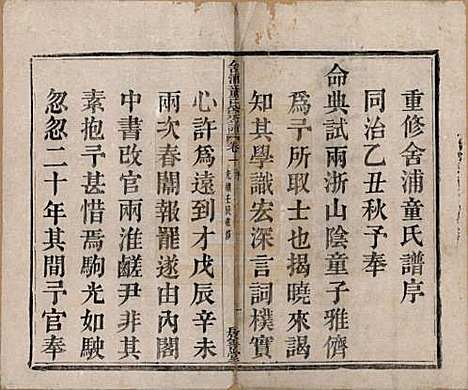 重修舍浦童氏譜序
同治乙丑秋予奉
命典試兩浙山陰童子雅儕
爲予所取士也揭曉來謁
知其學識宏深言詞樸實
舍浦童氏宗譜 卷一
心許爲遠到才戊辰辛未
兩次春闈報罷遂由內閣
中書改官兩淮鹺尹非其
素抱予甚惜焉駒光如駛
忽忽二十年其間予官奉